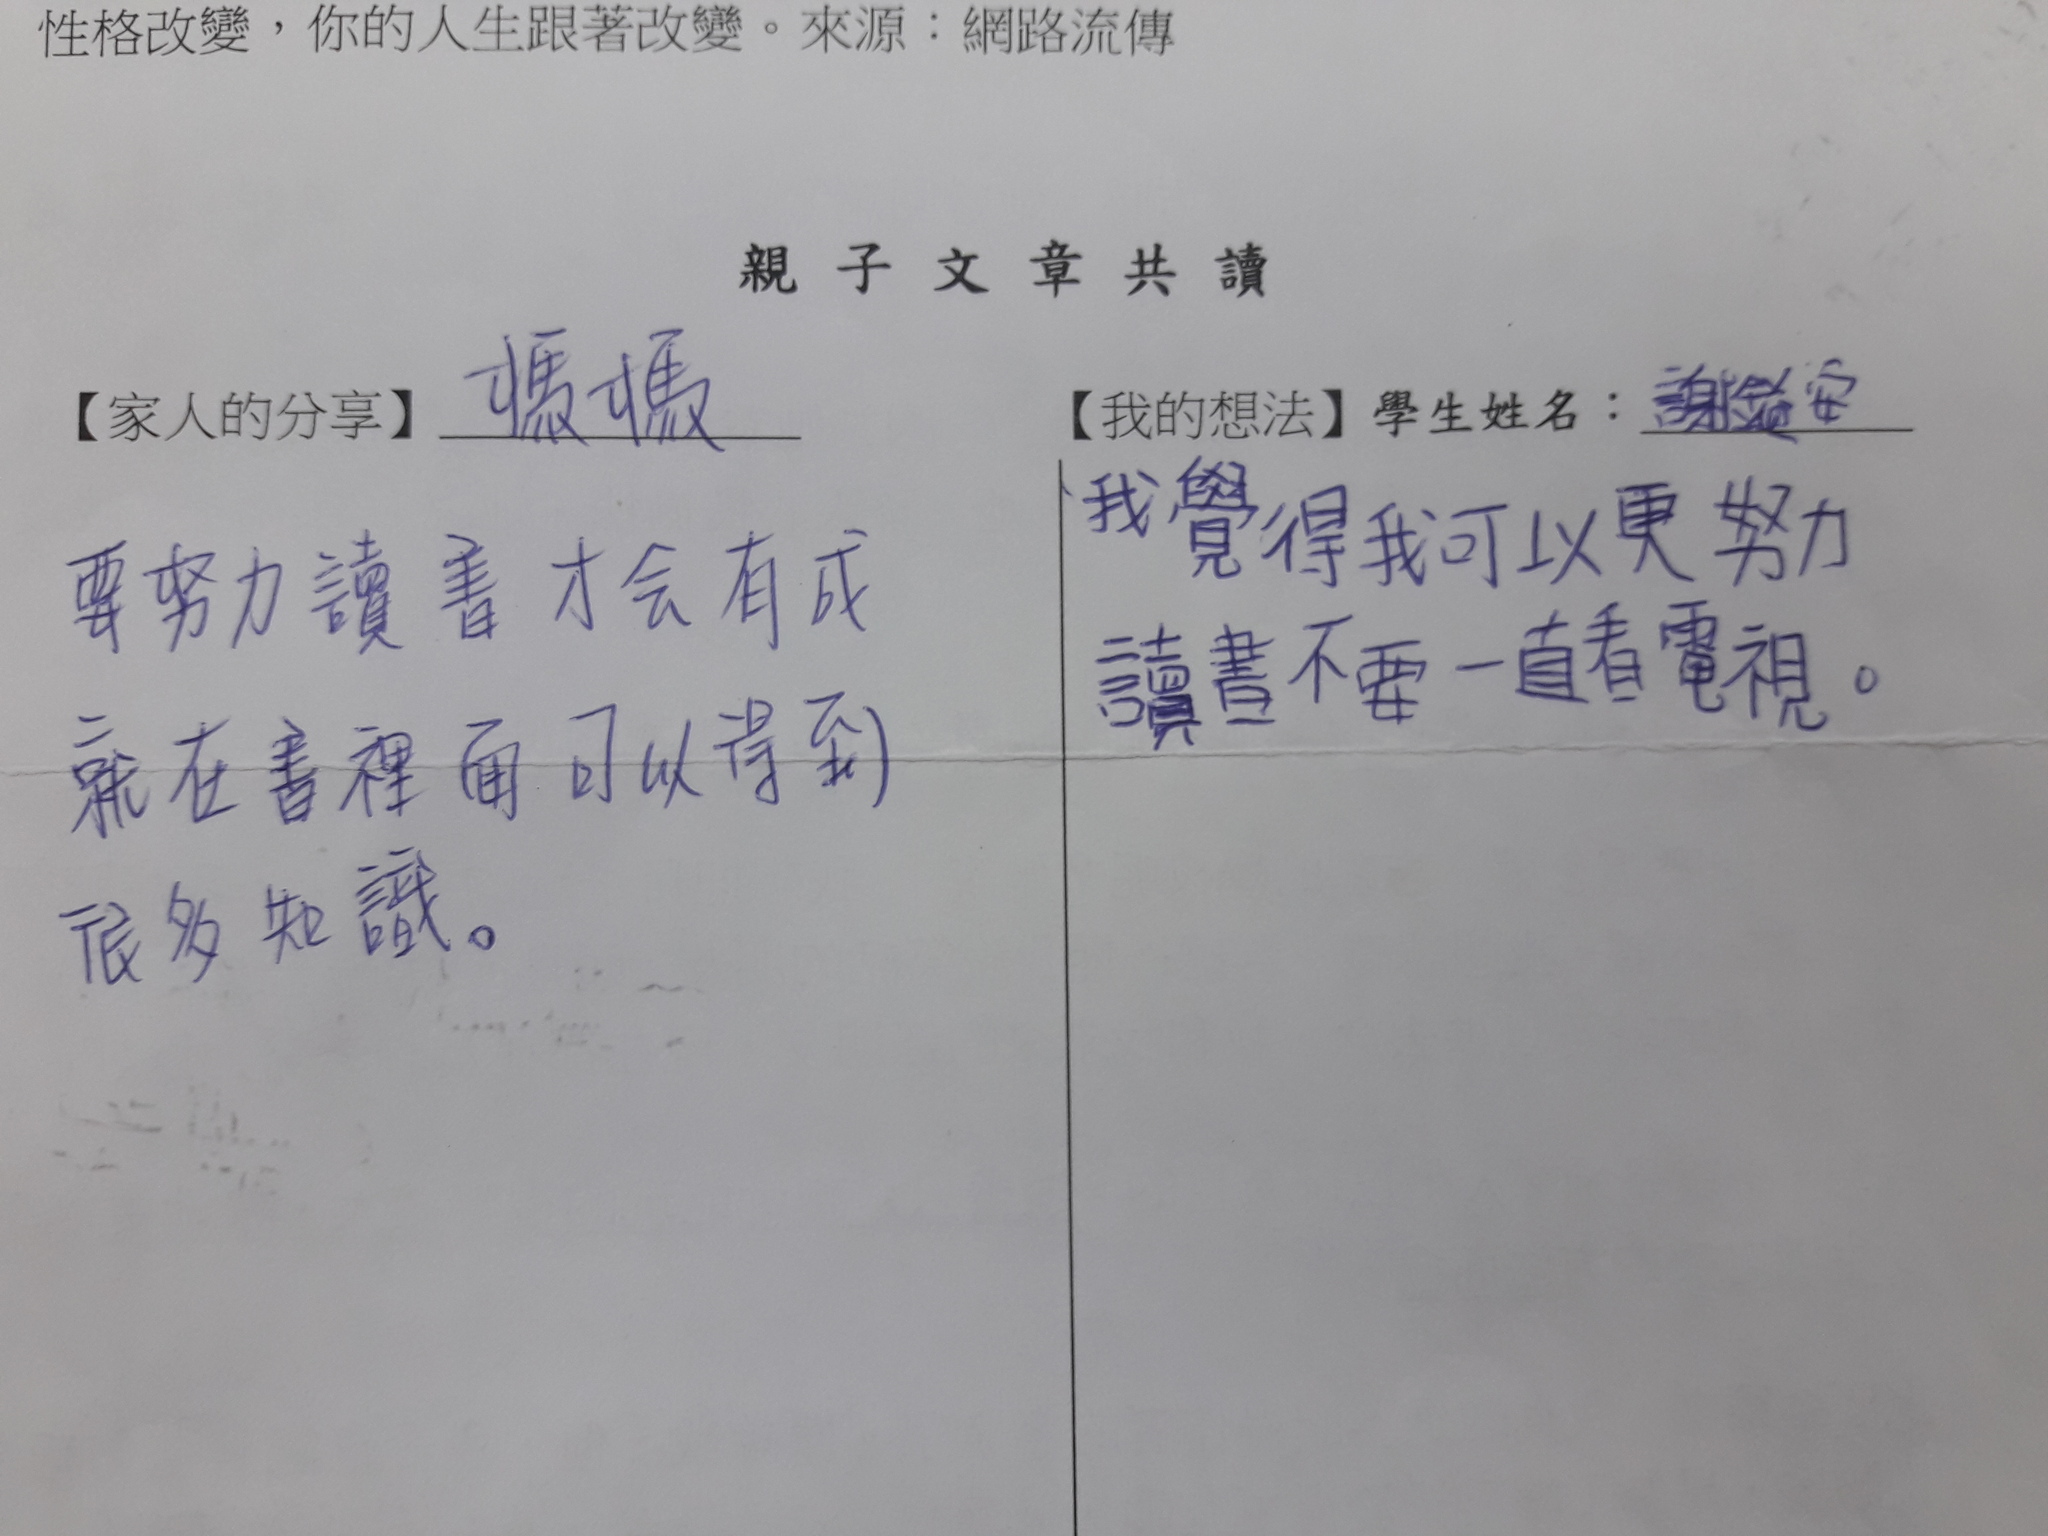 性格改變，你的人生跟著改變。來源：網路流傳
親子文章共讀
【家人的分享】媽媽
要努力讀書才会有成
就在書裡面可以得到
很多知識。
【我的想法】學生姓名：謝安
我覺得我可以更努力
讀書不要一直看電視。